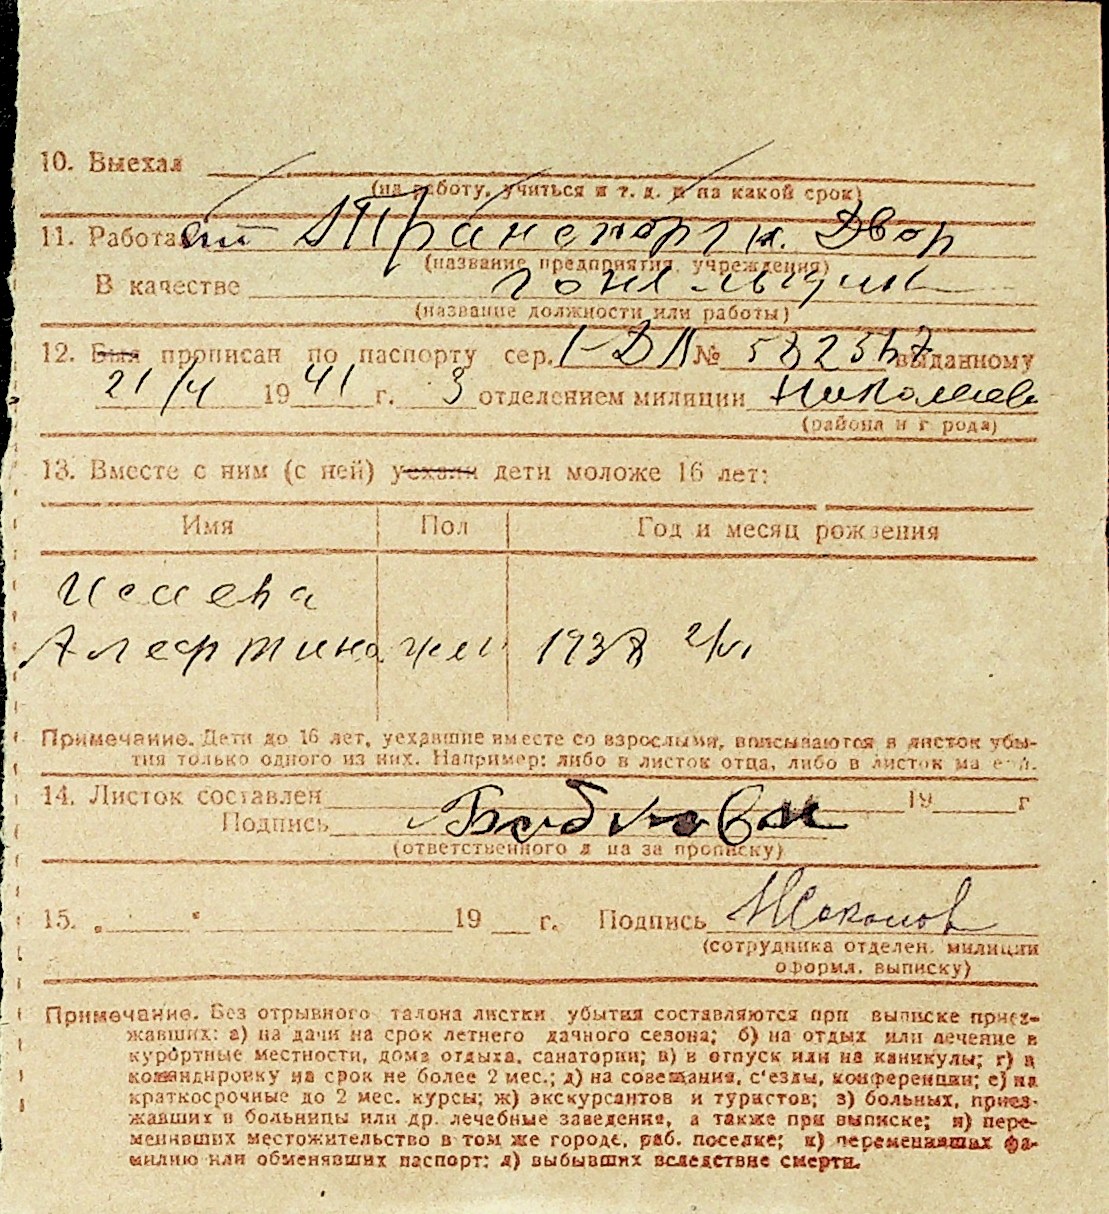 10. Выехал
(на работу, учиться и т. д. и на какой срок)
11. Работает Транспортн. Двор
(название предприятия, учреждения)
В качестве
(название должности или работы)
12. Был прописан по паспорту сер. № выданному
21/4 1941 г. 3 отделением милиции Николаев
(района и города)
13. Вместе с ним (с ней) уехали дети моложе 16 лет:
Имя Пол Год и месяц рождения
Исаева
Алефтина жен 1938
Примечание. Дети до 16 лет, уехавшие вместе со взрослыми, вписываются в листок убы-
тия только одного из них. Например: либо в листок отца, либо в листок матери.
14. Листок составлен 19 г
Подпись
(ответственного лица за прописку)
15. „ " 19 г. Подпись Соколов
(сотрудника отделен. милиции
оформл. выписку)
Примечание. Без отрывного талона листки убытия составляются при выписке приез-
жавших: а) на дачи на срок летнего дачного сезона; б) на отдых или лечение в
курортные местности, дома отдыха, санатории; в) в отпуск или на каникулы; г) в
командировку на срок не более 2 мес.; д) на совещания, с'езды, конференции; е) на
краткосрочные до 2 мес. курсы; ж) экскурсантов и туристов; з) больных, приез-
жавших в больницы или др. лечебные заведения, а также при выписке; и) пере-
менивших местожительство в том же городе, раб. поселке; к) переменивших фа-
милию или обменявших паспорт; л) выбывших вследствие смерти.